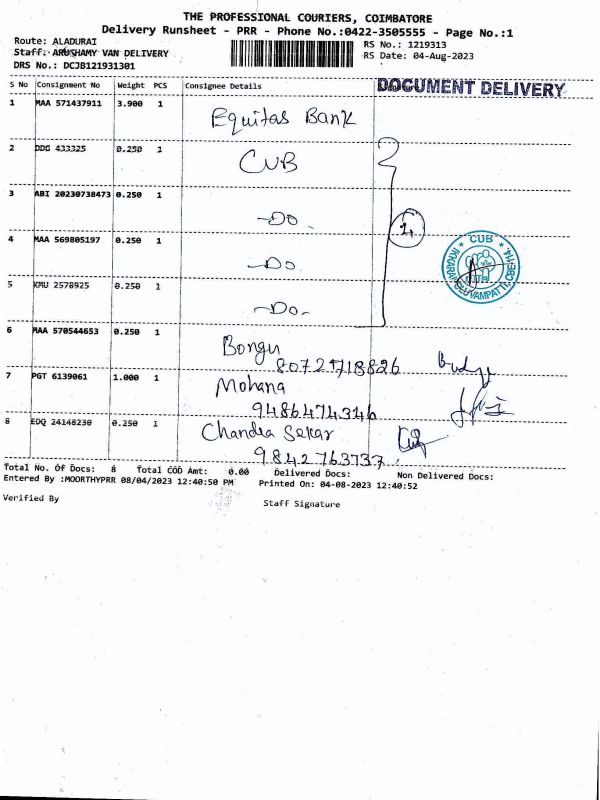 THE PROFESSIONAL COURIERS, COIMBATORE
Delivery Runsheet - PRR - Phone No.:0422-3505555 - Page No.:1
Route: ALADURAI
RS No.: 1219313
Staff: ARUSHAMY VAN DELIVERY
RS Date: 04-Aug-2023
DRS No.: DCJB121931301
S No Consignment No Weight PCS Consignee Details DOCUMENT DELIVERY
1 MAA 571437911 3.900 1 Equitas Bank
2 DDG 433325 0.250 1 CUB
3 ABI 20230738473 0.250 1 -Do-
1,
4 MAA 569805197 0.250 1 -Do
CUB
5 KMU 2578925 0.250 1 -Do-
6 MAA 570544653 0.250 1 Bongu
7 PGT 6139061 1.000 1 Mohana
9486474346
8 EDQ 24148230 0.250 1 Chandra Sekar
9842763737
Total No. Of Docs: 8 Total COD Amt: 0.00 Delivered Docs: Non Delivered Docs:
Entered By :MOORTHYPRR 08/04/2023 12:40:50 PM Printed On: 04-08-2023 12:40:52
Verified By
Staff Signature